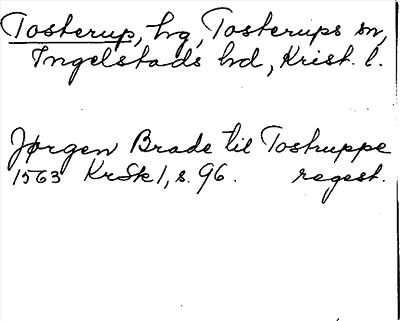 Tosterup, hg, Tosterups sn,
Ingelstads hd, Krist. l.
Jørgen Brade til Tostruppe
1563 KrSk 1, s. 96. regest.